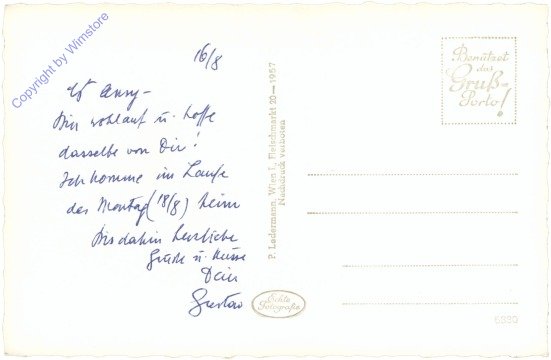 Copyright by Wimstore
16/8
Anny –
Bin wohlauf u. hoffe
dasselbe von Dir!
Ich komme im Laufe
des Montag (18/8) heim
Bis dahin herzliche
Grüße u. Küsse
Dein
Gustav
P. Ledermann, Wien I., Fleischmarkt 20—1957
Nachdruck verboten
Benützet
das
Gruß-
Porto!
Echte
Fotografie